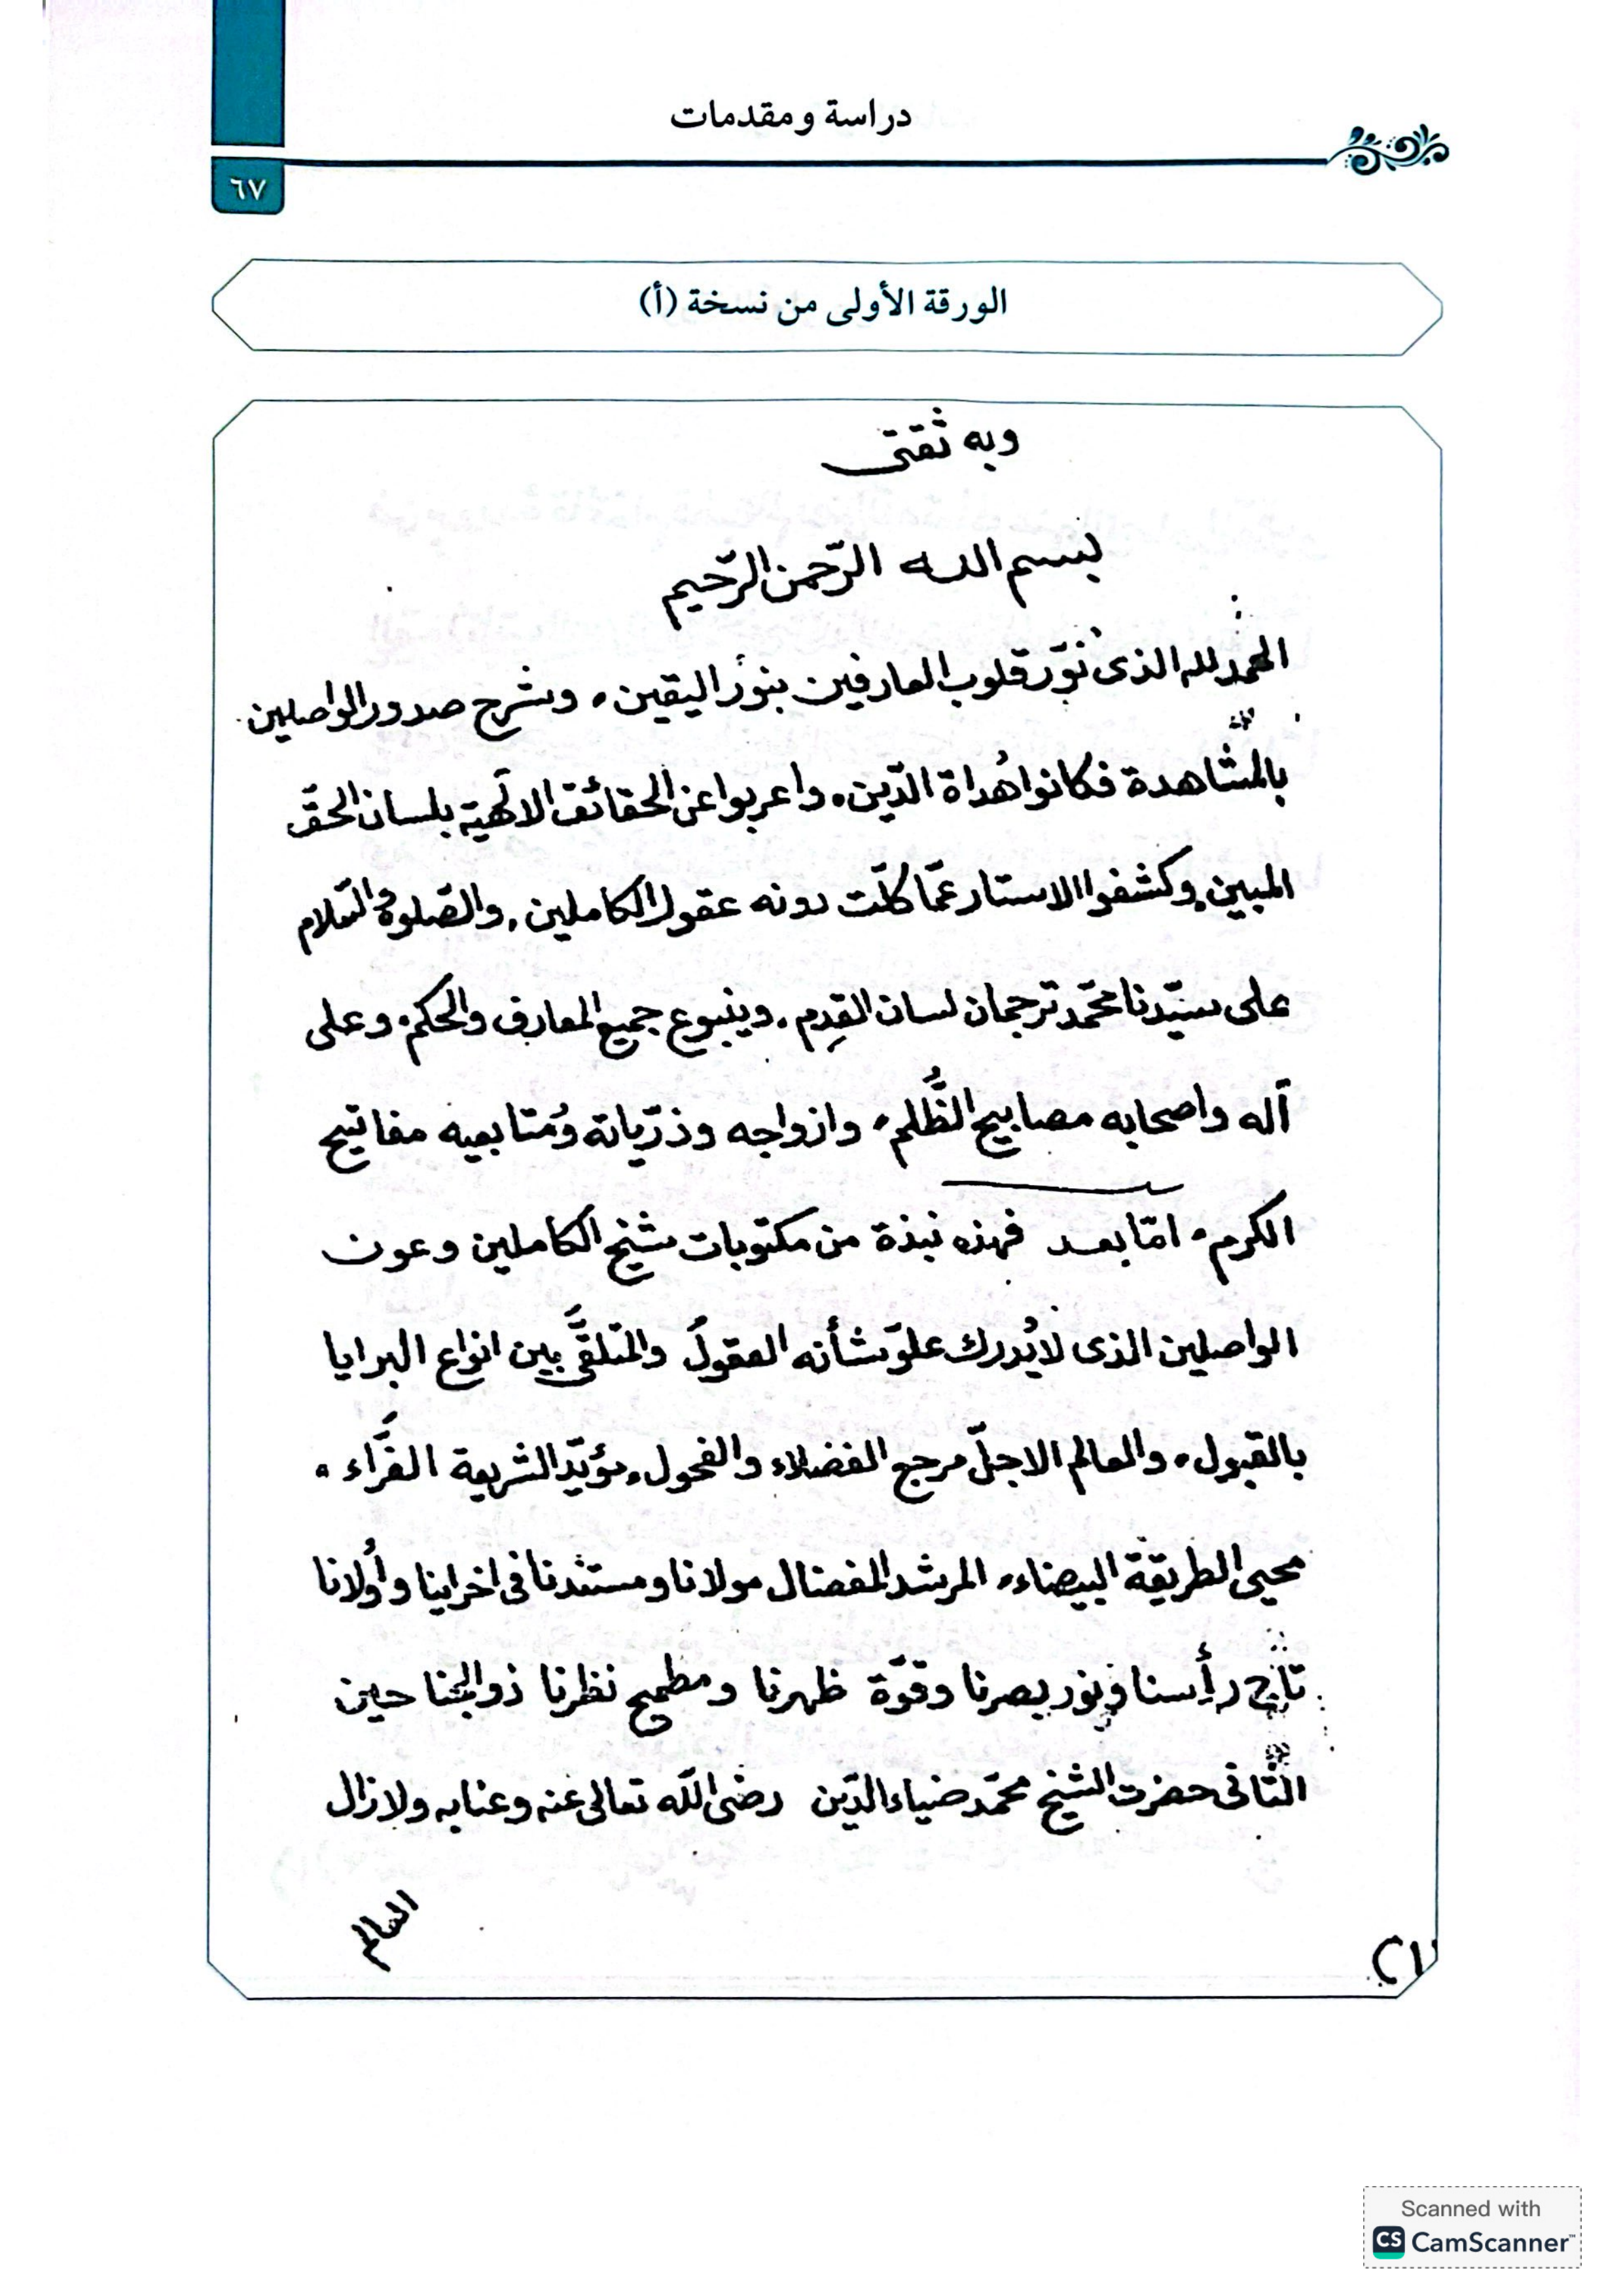 دراسة ومقدمات
٦٧
الورقة الأولى من نسخة (أ)
وبه ثقتى
بسم الله الرّحمن الرّحيم
الحمد لله الذى نوّر قلوب العارفين بنور اليقين، وشرح صدور الواصلين
بالمشاهدة فكانوا هُداة الدّين، واعربوا عن الحقائق الالٓهية بلسان الحقّ
المبين، وكشفوا الاستار عمّا كلّت دونه عقول الكاملين، والصّلوة والسّلام
على سيّدنا محمّد ترجمان لسان القِدم، وينبوع جميع المعارف والحكم، وعلى
آله واصحابه مصابيح الظُّلم، وازواجه وذرّياته ومُتابعيه مفاتيح
الكرم، امّا بعد فهذه نبذة من مكتوبات شيخ الكاملين وعون
الواصلين الذى لايُدرك علوّ شأنه العقولُ والمتلقَّى بين انواع البرايا
بالقبول، والعالم الاجلّ مرجع الفضلاء والفحول، مؤيّد الشريعة الغرَّاء،
محيى الطريقة البيضاء، المرشد المفضال مولانا ومستندنا فى اخرٰينا واُولانا
تاج رأسنا ونور بصرنا وقوّة ظهرنا ومطمح نظرنا ذو الجناحين
الثّانى حضرت الشيخ محمّد ضياء الدّين رضى اللّه تعالى عنه وعنابه ولازال
العالم
Scanned with
CS CamScanner